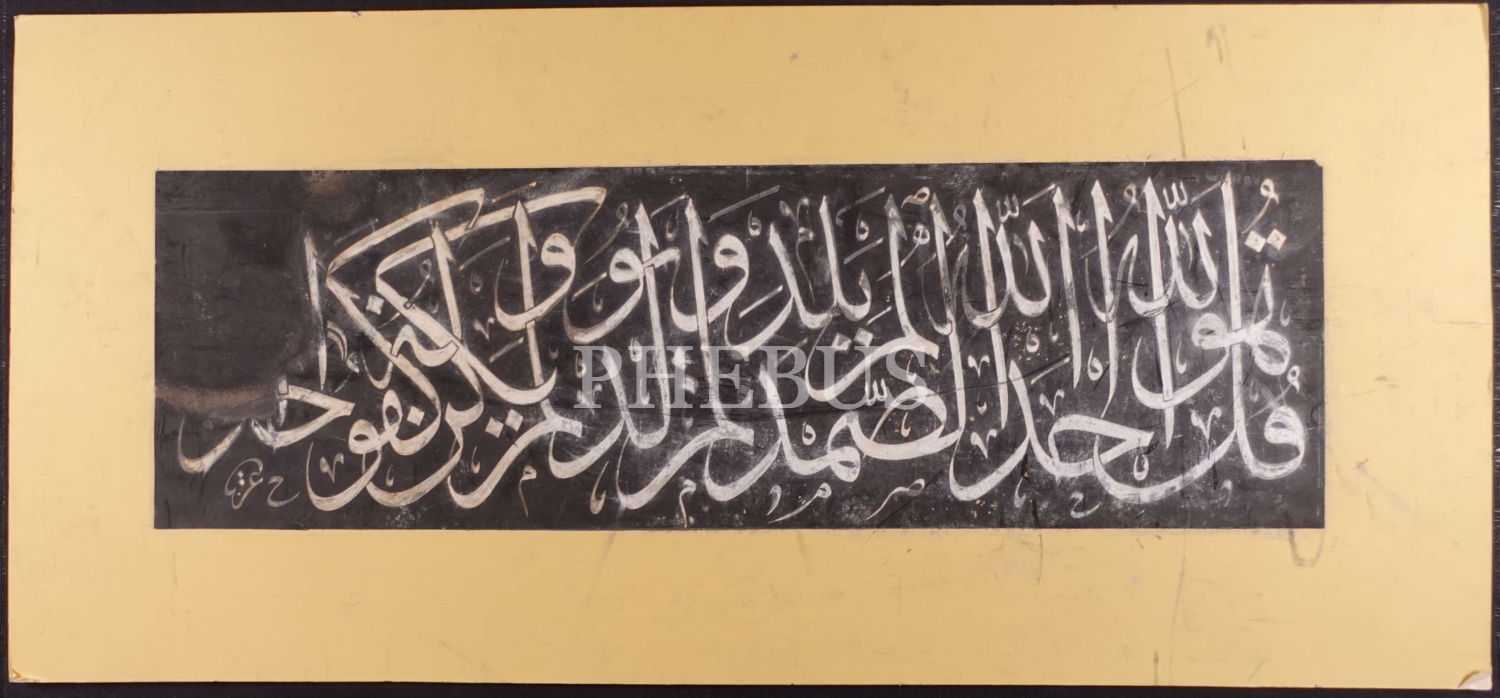 قل هو الله احد الله الصمد لم يلد ولم يولد ولم يكن له كفوا احد
PHEBUS